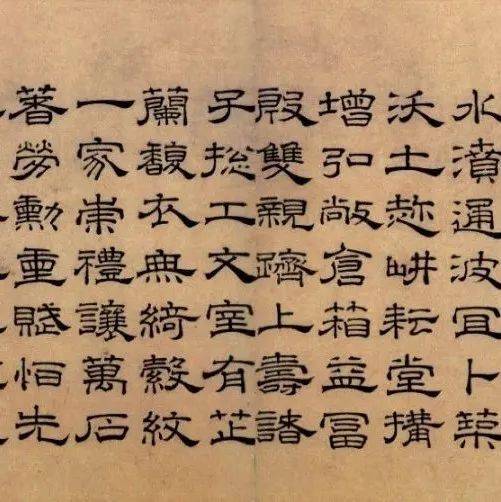 水濆通波冝卜築
沃土趂畊耘堂搆
增弘敞倉箱益冨
殷雙親躋上壽諸
子捴工文室有芷
蘭馥衣無綺縠紋
一家崇禮讓萬石
著勞勳重賦恒先